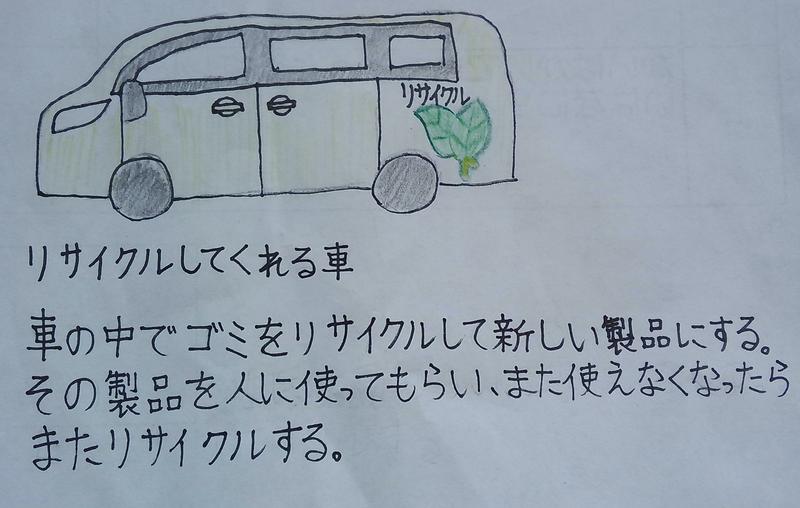 リサイクル
リサイクルしてくれる車
車の中でゴミをリサイクルして新しい製品にする。
その製品を人に使ってもらい、また使えなくなったら
またリサイクルする。